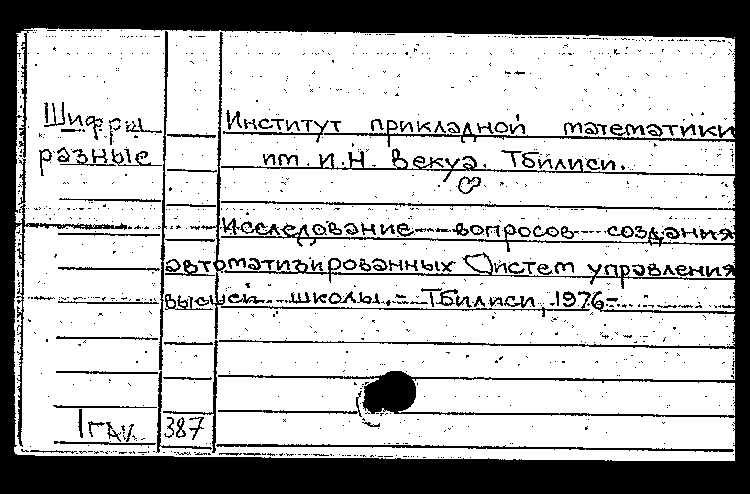 Шифры
разные
Институт прикладной математики
им. И.Н. Векуа. Тбилиси.
Исследование вопросов создания
автоматизированных систем управления
высшей школы. - Тбилиси, 1976-
387